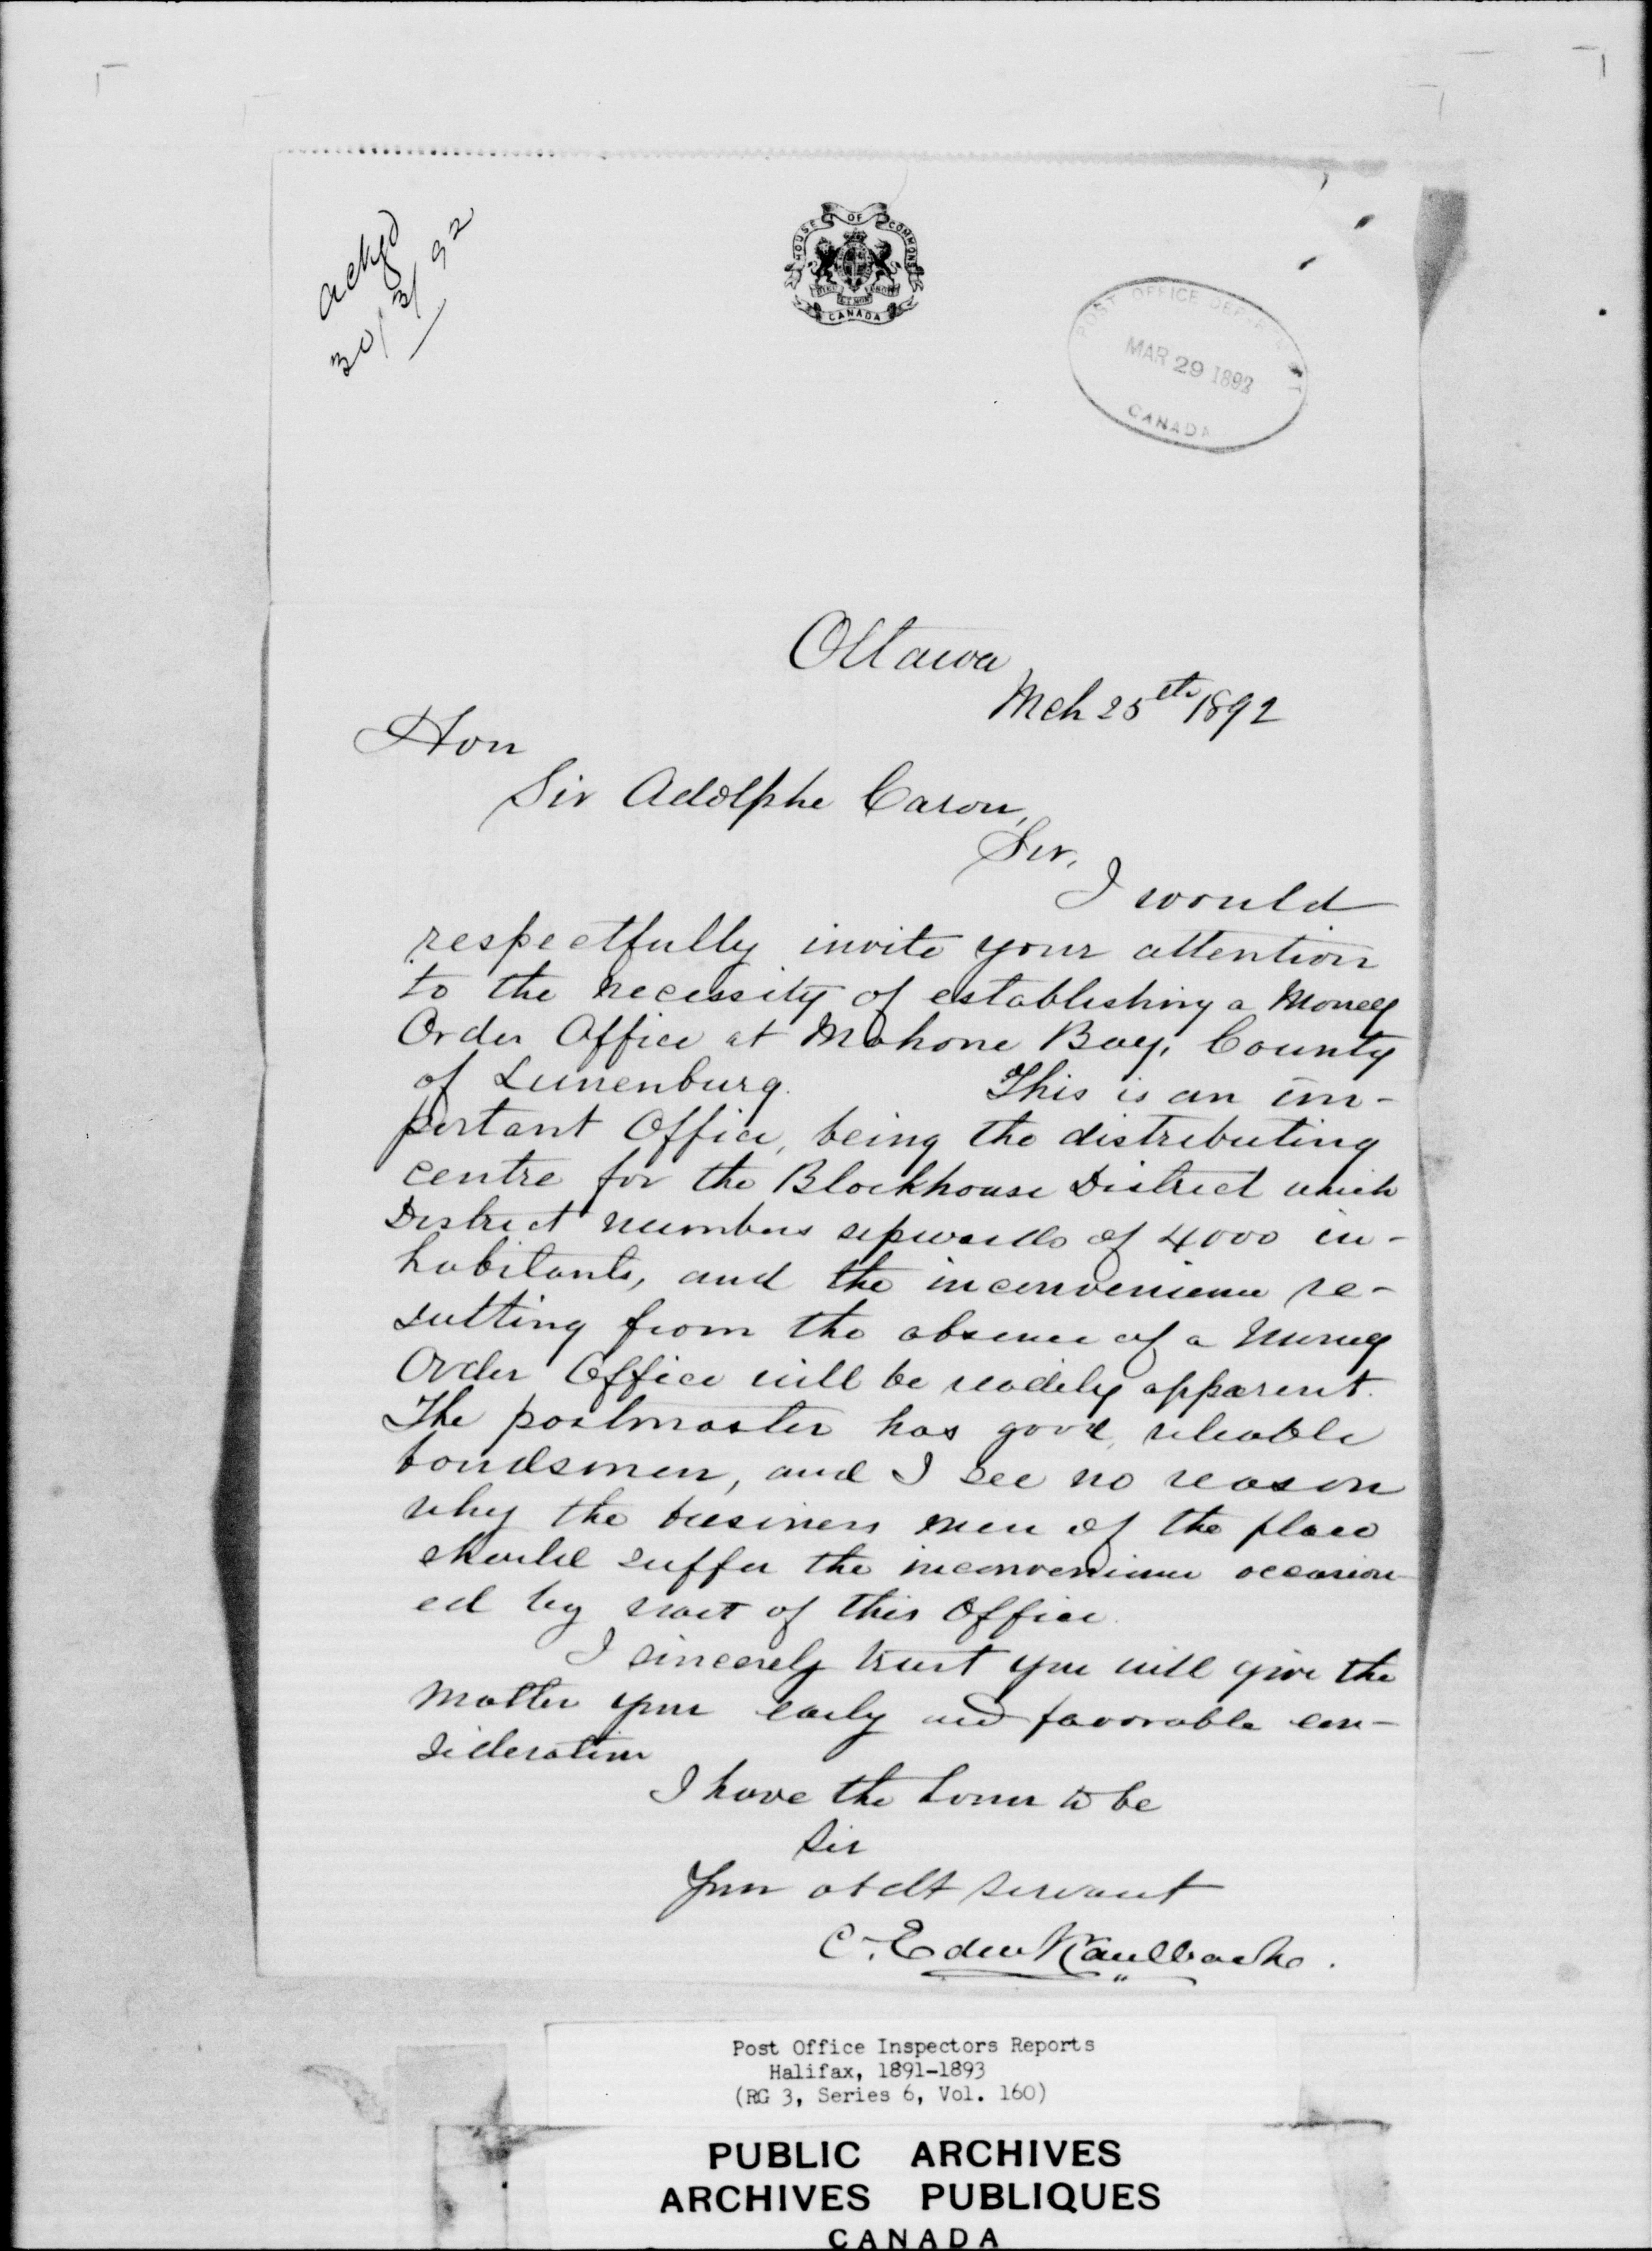 ackgd
30/3/92
HOUSE OF COMMONS
CANADA
POST OFFICE DEPARTMENT
MAR 29 1892
CANADA
Ottawa
Mch 25th 1892
Hon
Sir Adolphe Caron,
Sir,
I would
respectfully invite your attention
to the necessity of establishing a Money
Order Office at Mahone Bay, County
of Lunenburg. This is an im-
portant Office, being the distributing
centre for the Blockhouse District which
District numbers upwards of 4000 in-
habitants, and the inconvenience re-
sulting from the absence of a Money
Order Office will be readily apparent.
The postmaster has good, reliable
bondsmen, and I see no reason
why the business men of the place
should suffer the inconvenience occasion-
ed by want of this Office.
I sincerely trust you will give the
matter your early and favorable con-
sideration
I have the honor to be
Sir
Your obdt servant
C. Edwin Kaulbach.
Post Office Inspectors Reports
Halifax, 1891-1893
(RG 3, Series 6, Vol. 160)
PUBLIC ARCHIVES
ARCHIVES PUBLIQUES
CANADA